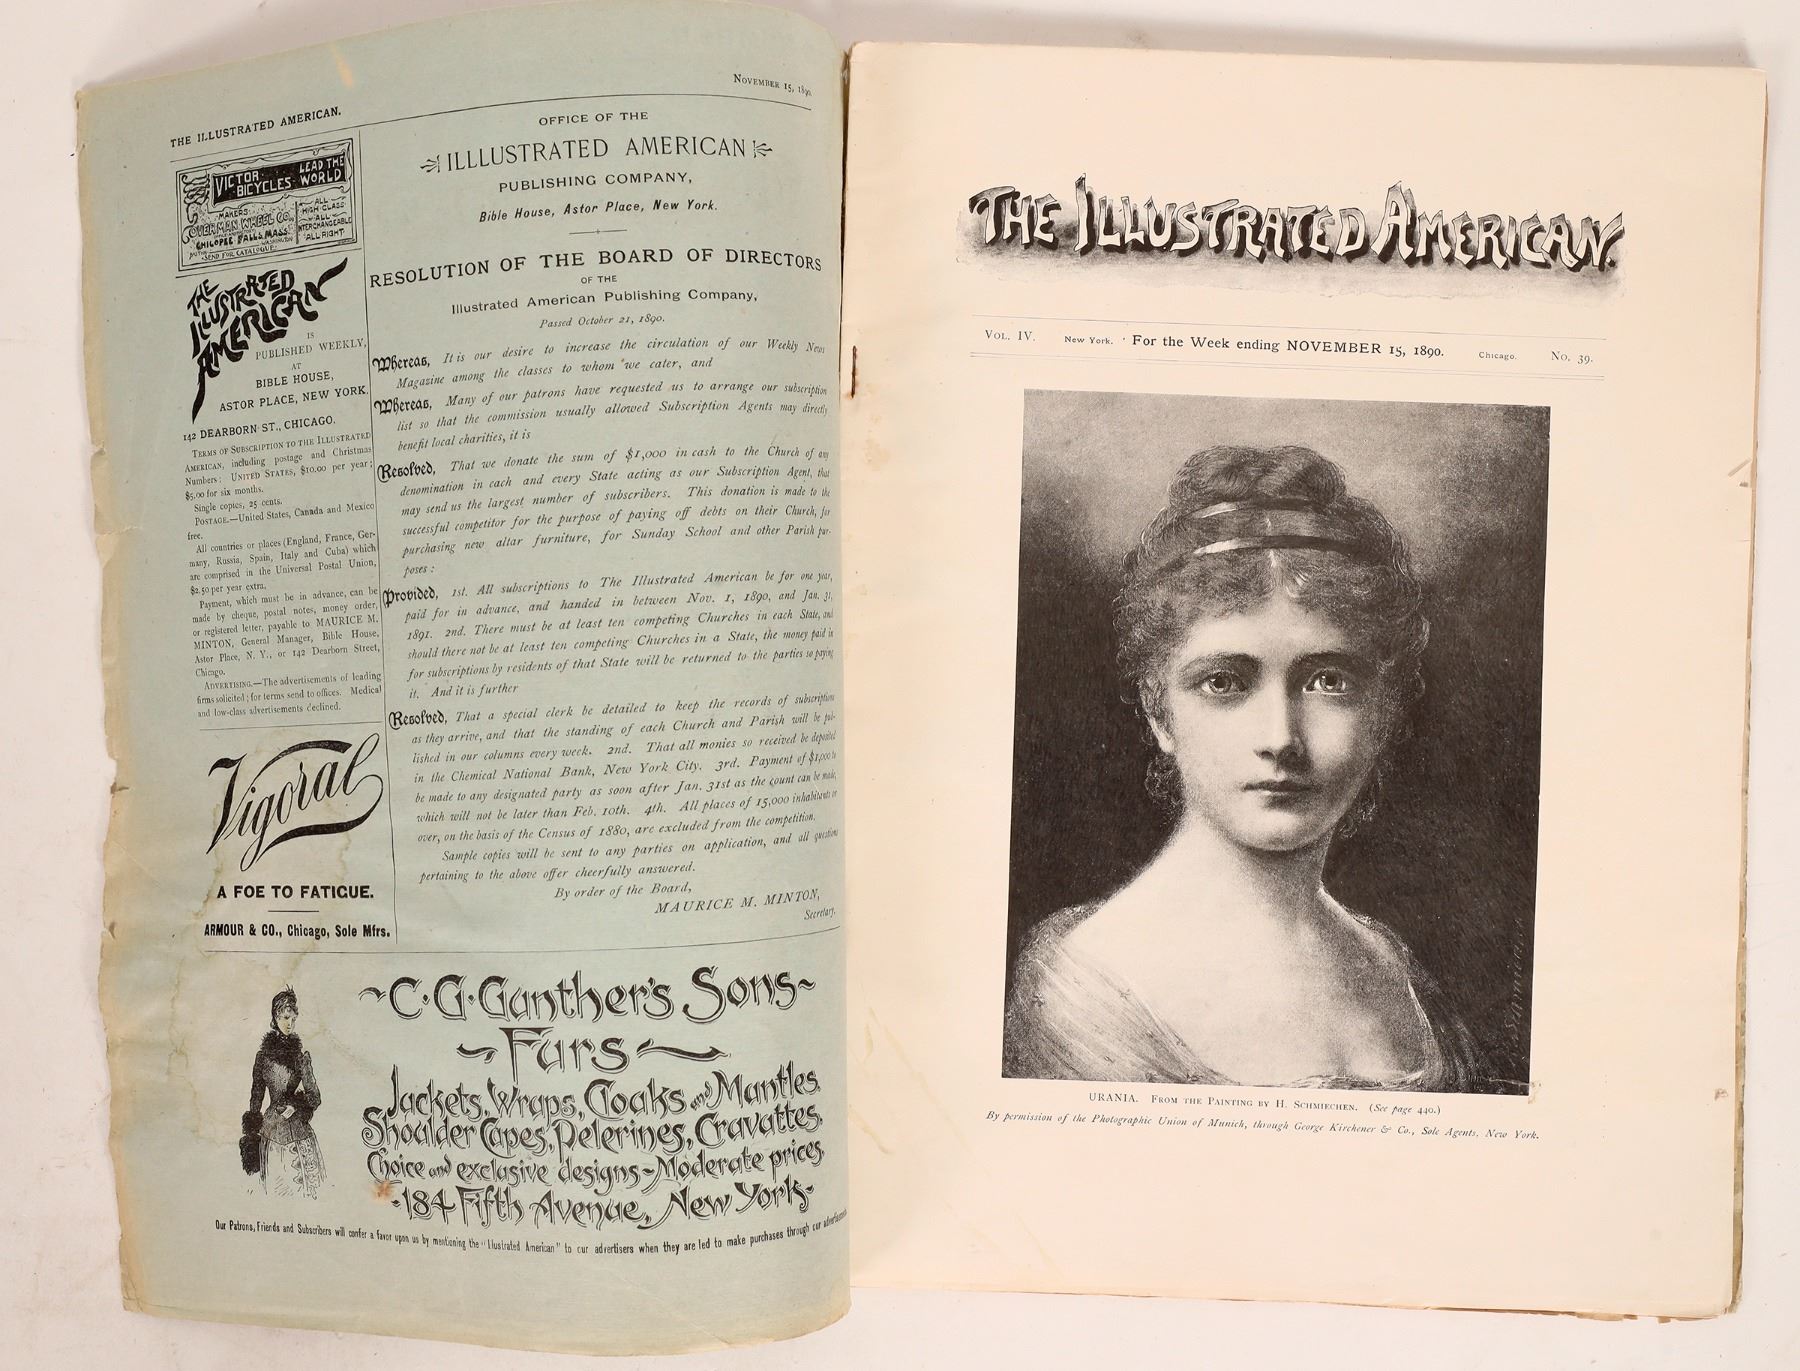 THE ILLUSTRATED AMERICAN.
NOVEMBER 15, 1890.
VICTOR BICYCLES LEAD THE WORLD
MAKERS:
OVERMAN WHEEL CO.
CHICOPEE FALLS, MASS.
BOSTON WASHINGTON
SEND FOR CATALOGUE.
ALL HIGH CLASS
ALL INTERCHANGEABLE
ALL RIGHT.
THE ILLUSTRATED AMERICAN
IS
PUBLISHED WEEKLY,
AT
BIBLE HOUSE,
ASTOR PLACE, NEW YORK.
142 DEARBORN ST., CHICAGO.
TERMS OF SUBSCRIPTION TO THE ILLUSTRATED
AMERICAN, including postage and Christmas
Numbers: UNITED STATES, $10.00 per year;
$5.00 for six months.
Single copies, 25 cents.
POSTAGE.—United States, Canada and Mexico
free.
All countries or places (England, France, Ger-
many, Russia, Spain, Italy and Cuba) which
are comprised in the Universal Postal Union,
$2.50 per year extra.
Payment, which must be in advance, can be
made by cheque, postal notes, money order,
or registered letter, payable to MAURICE M.
MINTON, General Manager, Bible House,
Astor Place, N. Y., or 142 Dearborn Street,
Chicago.
ADVERTISING.—The advertisements of leading
firms solicited; for terms send to offices. Medical
and low-class advertisements declined.
Vigoral
A FOE TO FATIGUE.
ARMOUR & CO., Chicago, Sole Mfrs.
OFFICE OF THE
ILLLUSTRATED AMERICAN
PUBLISHING COMPANY,
Bible House, Astor Place, New York.
RESOLUTION OF THE BOARD OF DIRECTORS
OF THE
Illustrated American Publishing Company,
Passed October 21, 1890.
Whereas, It is our desire to increase the circulation of our Weekly News
Magazine among the classes to whom we cater, and
Whereas, Many of our patrons have requested us to arrange our subscription
list so that the commission usually allowed Subscription Agents may directly
benefit local charities, it is
Resolved, That we donate the sum of $1,000 in cash to the Church of any
denomination in each and every State acting as our Subscription Agent, that
may send us the largest number of subscribers. This donation is made to the
successful competitor for the purpose of paying off debts on their Church, for
purchasing new altar furniture, for Sunday School and other Parish pur-
poses:
Provided, 1st. All subscriptions to The Illustrated American be for one year,
paid for in advance, and handed in between Nov. 1, 1890, and Jan. 31,
1891. 2nd. There must be at least ten competing Churches in each State, and
should there not be at least ten competing Churches in a State, the money paid in
for subscriptions by residents of that State will be returned to the parties so paying
it. And it is further
Resolved, That a special clerk be detailed to keep the records of subscriptions
as they arrive, and that the standing of each Church and Parish will be pub-
lished in our columns every week. 2nd. That all monies so received be deposited
in the Chemical National Bank, New York City. 3rd. Payment of $1,000 to
be made to any designated party as soon after Jan. 31st as the count can be made,
which will not be later than Feb. 10th. 4th. All places of 15,000 inhabitants or
over, on the basis of the Census of 1880, are excluded from the competition.
Sample copies will be sent to any parties on application, and all questions
pertaining to the above offer cheerfully answered.
By order of the Board,
MAURICE M. MINTON,
Secretary.
C. G. Gunther's Sons
Furs
Jackets, Wraps, Cloaks and Mantles.
Shoulder Capes, Pelerines, Cravattes.
Choice and exclusive designs - Moderate prices.
184 Fifth Avenue, New York
Our Patrons, Friends and Subscribers will confer a favor upon us by mentioning the "Illustrated American" to our advertisers when they are led to make purchases through our advertisements.
THE ILLUSTRATED AMERICAN.
VOL. IV. New York. For the Week ending NOVEMBER 15, 1890. Chicago. No. 39.
Schmiechen
URANIA. FROM THE PAINTING BY H. SCHMIECHEN. (See page 440.)
By permission of the Photographic Union of Munich, through George Kirchener & Co., Sole Agents, New York.